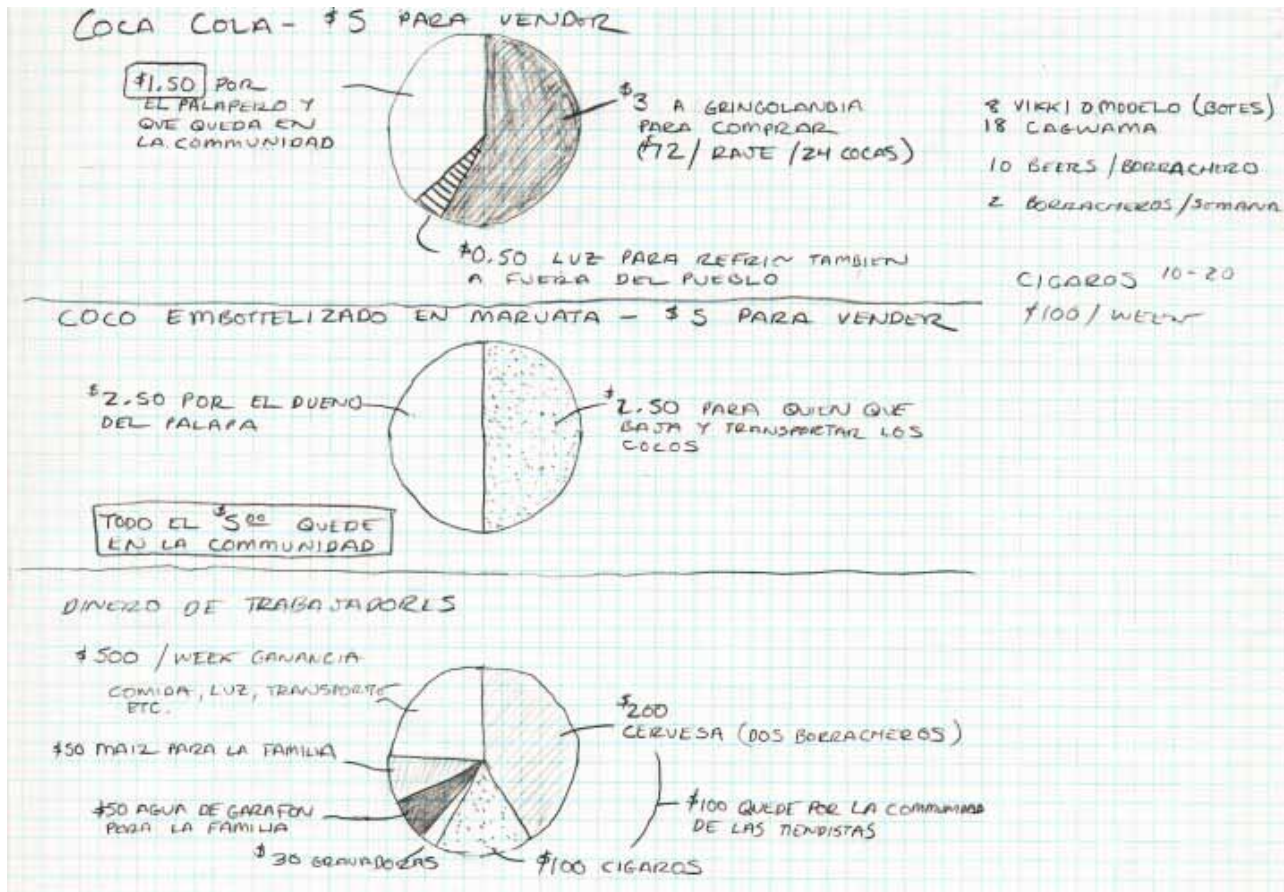 COCA COLA - $5 PARA VENDER
$1.50 POR
EL PALAPERO Y
QUE QUEDA EN
LA COMMUNIDAD
$3 A GRINGOLANDIA
PARA COMPRAR
($72/ RAJE /24 COCAS)
$0.50 LUZ PARA REFRIN TAMBIEN
A FUERA DEL PUEBLO
8 VIKKI O MODELO (BOTES)
18 CAGWAMA
10 BEERS / BORRACHERO
2 BORRACHEROS / SEMANA
CIGAROS 10-20
$100 / WEEK
COCO EMBOTTELIZADO EN MARUATA - $5 PARA VENDER
$2.50 POR EL DUENO
DEL PALAPA
$2.50 PARA QUIEN QUE
BAJA Y TRANSPORTAR LOS
COCOS
TODO EL $5.00 QUEDE
EN LA COMMUNIDAD
DINERO DE TRABAJADORES
$500 / WEEK GANANCIA
COMIDA, LUZ, TRANSPORTE
ETC.
$50 MAIZ PARA LA FAMILIA
$50 AGUA DE GARAFON
PARA LA FAMILIA
$30 GRAVADORAS
$100 CIGAROS
$200
CERVESA (DOS BORRACHEROS)
$100 QUEDE POR LA COMMUNIDAD
DE LAS TIENDISTAS